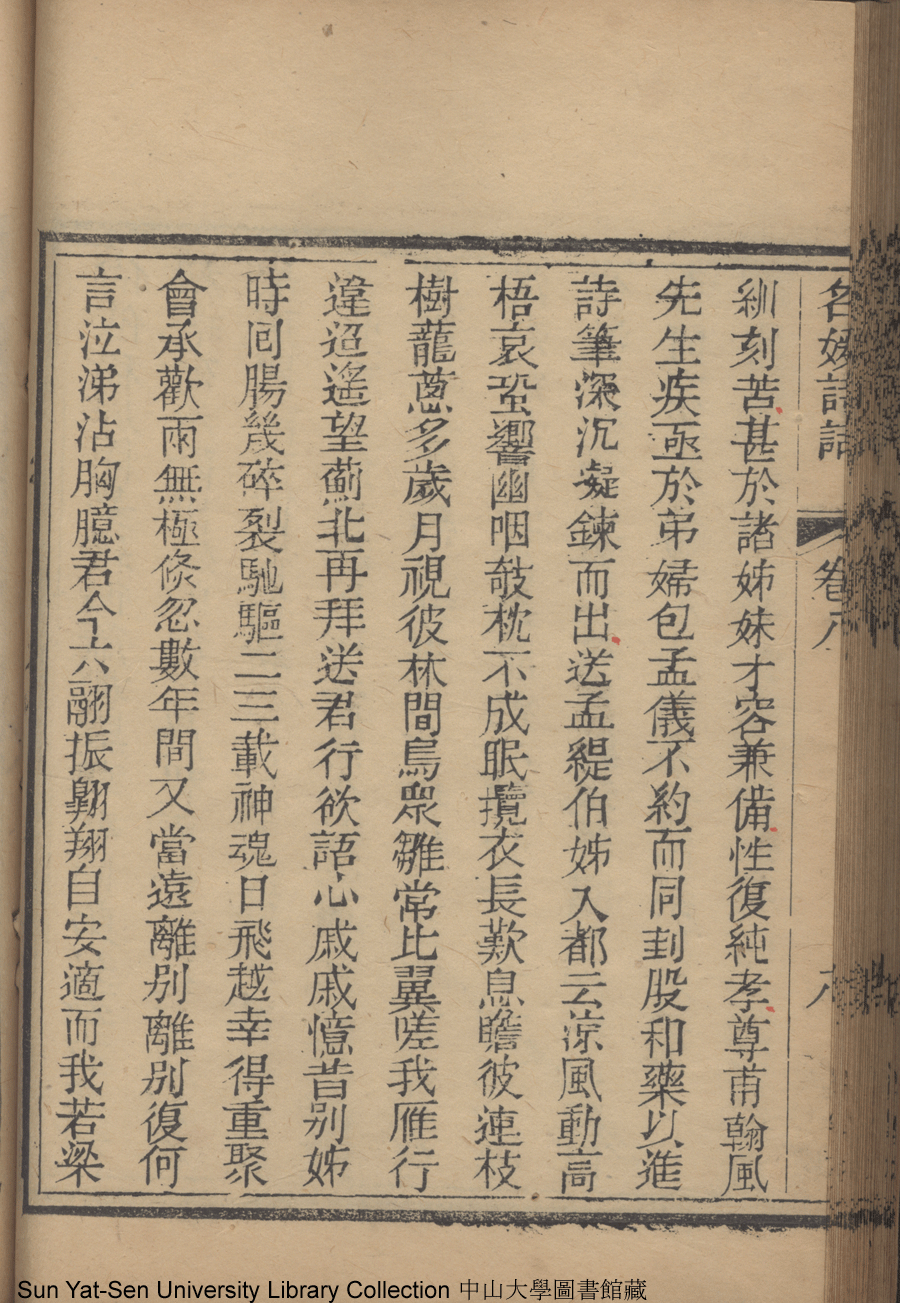 名媛詩話 卷八 八
紃刻苦甚於諸姊妹才容兼備性復純孝尊甫翰風
先生疾亟於弟婦包孟儀不約而同刲股和藥以進
詩筆深沉凝鍊而出送孟緹伯姊入都云涼風動高
梧哀蛩響幽咽敧枕不成眠攬衣長歎息瞻彼連枝
樹蘢蔥多歲月視彼林間鳥眾雛常比翼嗟我雁行
違迢遙望薊北再拜送君行欲語心戚戚憶昔別姊
時囘腸幾碎裂馳驅二三載神魂日飛越幸得重聚
會承歡兩無極倏忽數年間又當遠離別離別復何
言泣涕沾胸臆君今六翮振翺翔自安適而我若梁
Sun Yat-Sen University Library Collection 中山大學圖書館藏